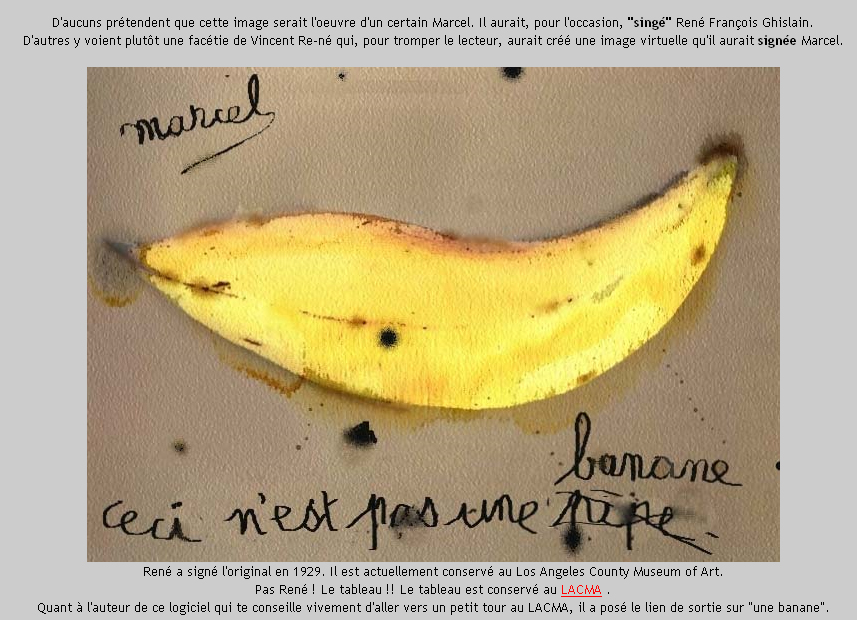 D'aucuns prétendent que cette image serait l'oeuvre d'un certain Marcel. Il aurait, pour l'occasion, "singé" René François Ghislain.
D'autres y voient plutôt une facétie de Vincent Re-né qui, pour tromper le lecteur, aurait créé une image virtuelle qu'il aurait signée Marcel.
marcel
banane
ceci n'est pas une pipe
René a signé l'original en 1929. Il est actuellement conservé au Los Angeles County Museum of Art.
Pas René ! Le tableau !! Le tableau est conservé au LACMA .
Quant à l'auteur de ce logiciel qui te conseille vivement d'aller vers un petit tour au LACMA, il a posé le lien de sortie sur "une banane".